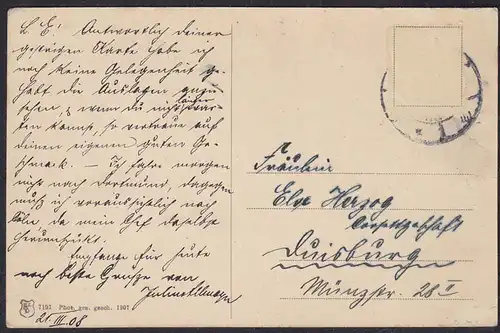 L. E.! Antwortlich deiner
gestrigen Karte habe ich
noch keine Gelegenheit ge-
habt die Auslagen anzu-
sehen & wenn du nicht
länger
warten kannst, so vertraue auf
deinen eigenen guten Ge-
schmack. — Ich fahre morgen
nicht nach Dortmund, dagegen
muß ich voraussichtlich nach
Cöln da mein Chef daselbst
Empfange für heute
noch beste Grüsse von
21.III.08
7191 Phot. gen. gesch. 1907
Fräulein
Else Herzog
Corsettgeschäft
Duisburg
Münzstr. 28 II